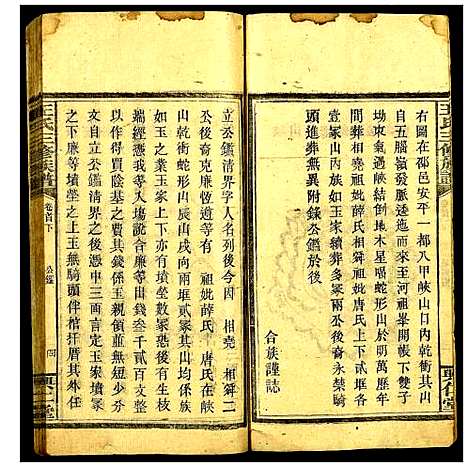 王氏三修族譜
右圖在邵邑安平一都八甲峽山口內乾衝其山
自五腦嶺發脈逶迤而來至河祖舉峰下雙子
坳束氣過峽結倒地木星唱蛇形山明萬曆年
間葬相堯祖妣薛氏唐氏於上下貳堆各
壹冢山內族如玉家續葬多冢兩房永禁騎
頭進葬無異附錄公鑑於後
合族謹誌
立公鑑清界字人名列後今因 相堯 相舜二
公後裔克廉恆逅等有 祖妣薛氏 唐氏在峽
山乾衝蛇形山辰山戌向兩堆貳冢其山均係族
如玉之業玉家上下亦有墳塋數冢茲後有生枝
端經憑我等入塲說合廉等出備錢叁千貳百文整
作為得買陰基之費其錢係玉親領並無短少分
文公鑑清界之後憑中三面言定玉家墳塋
之下廉等墳塋之上玉無騎頭伴棺扞厝其外任
王氏三修族譜
卷首下
公鑑
四